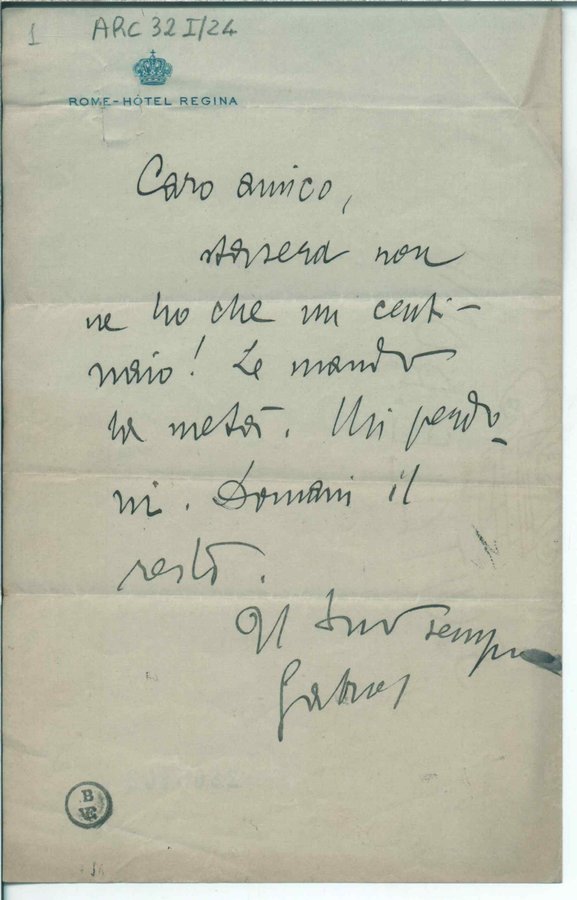 1 ARC 32 I/24
ROME-HÔTEL REGINA
Caro amico,
stasera non
ne ho che un centi-
naio! Le mando
la metà. Mi perdo-
ni. Domani il
resto.
Il suo sempre
Gabriel
B
VE